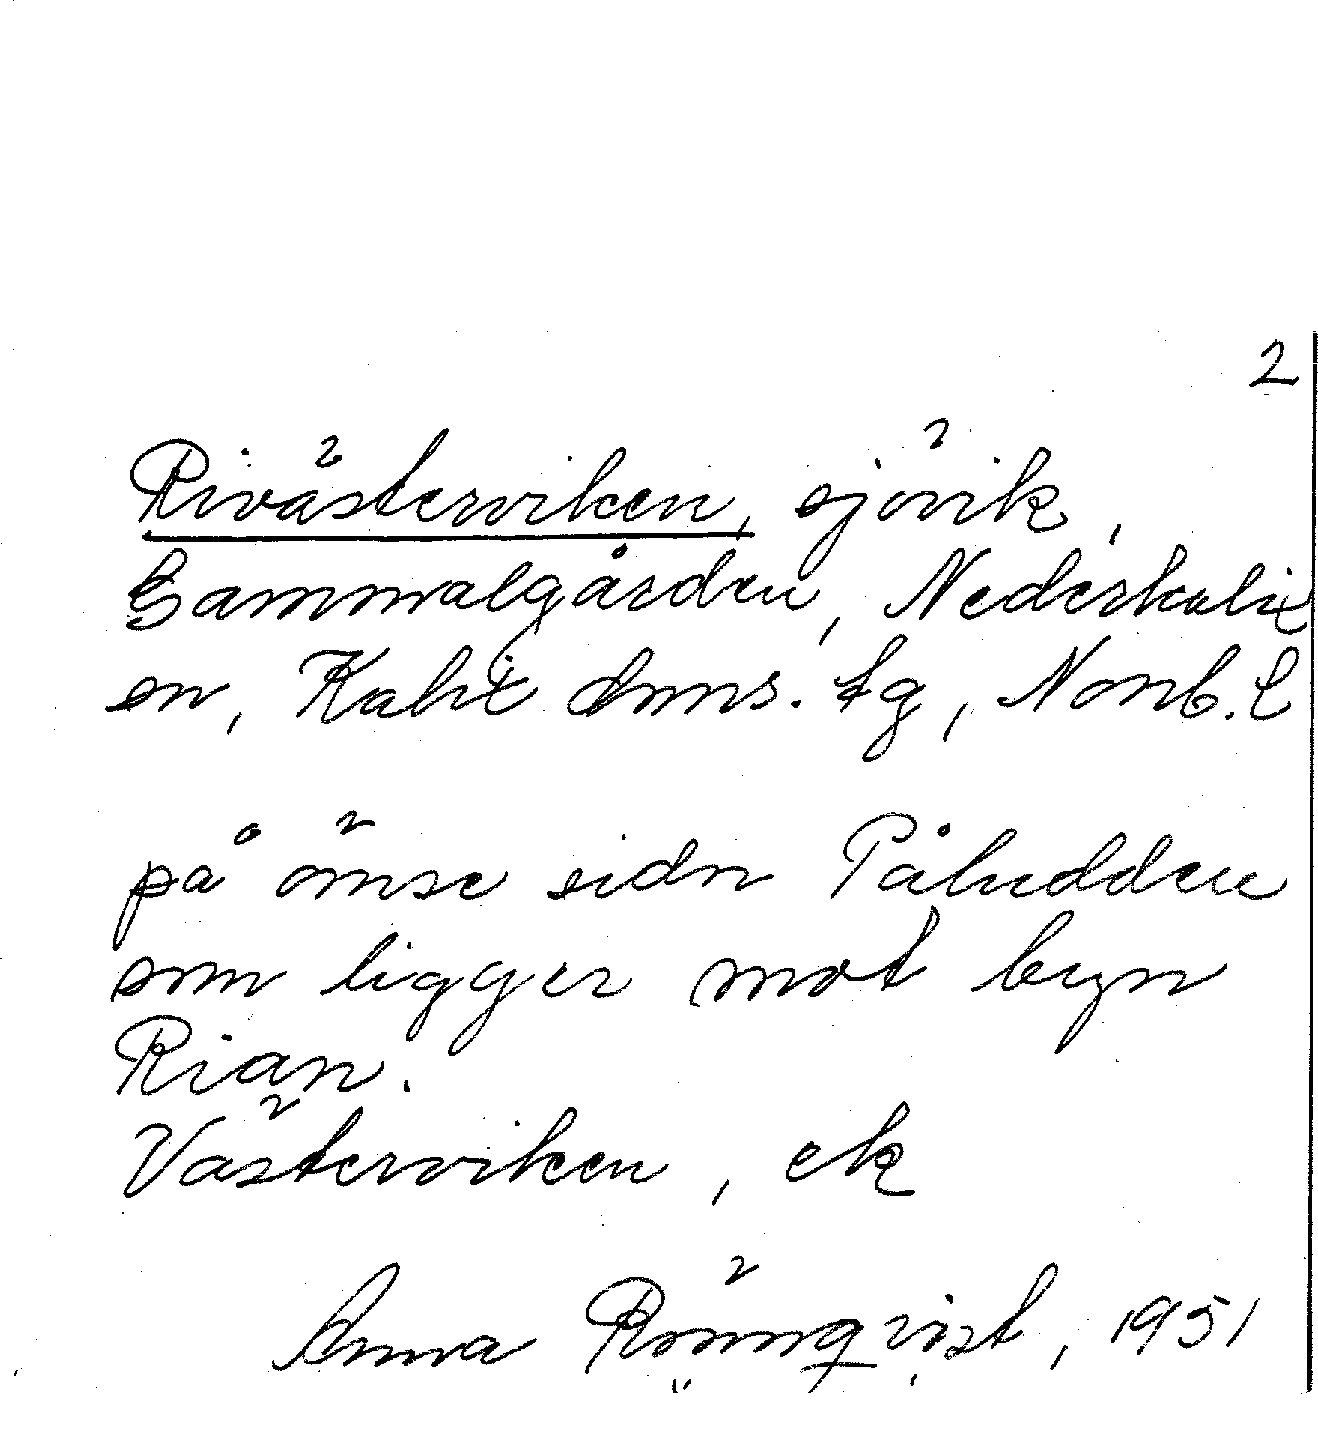 2
Rivästerviken, sjövik,
Gammalgården, Nederkalix
en, Kalix dms. tg, Norrb. l
på ömse sidn Påludden
som ligger mot byn
Rian.
Västerviken, ek
Anna Rönnqvist, 1951